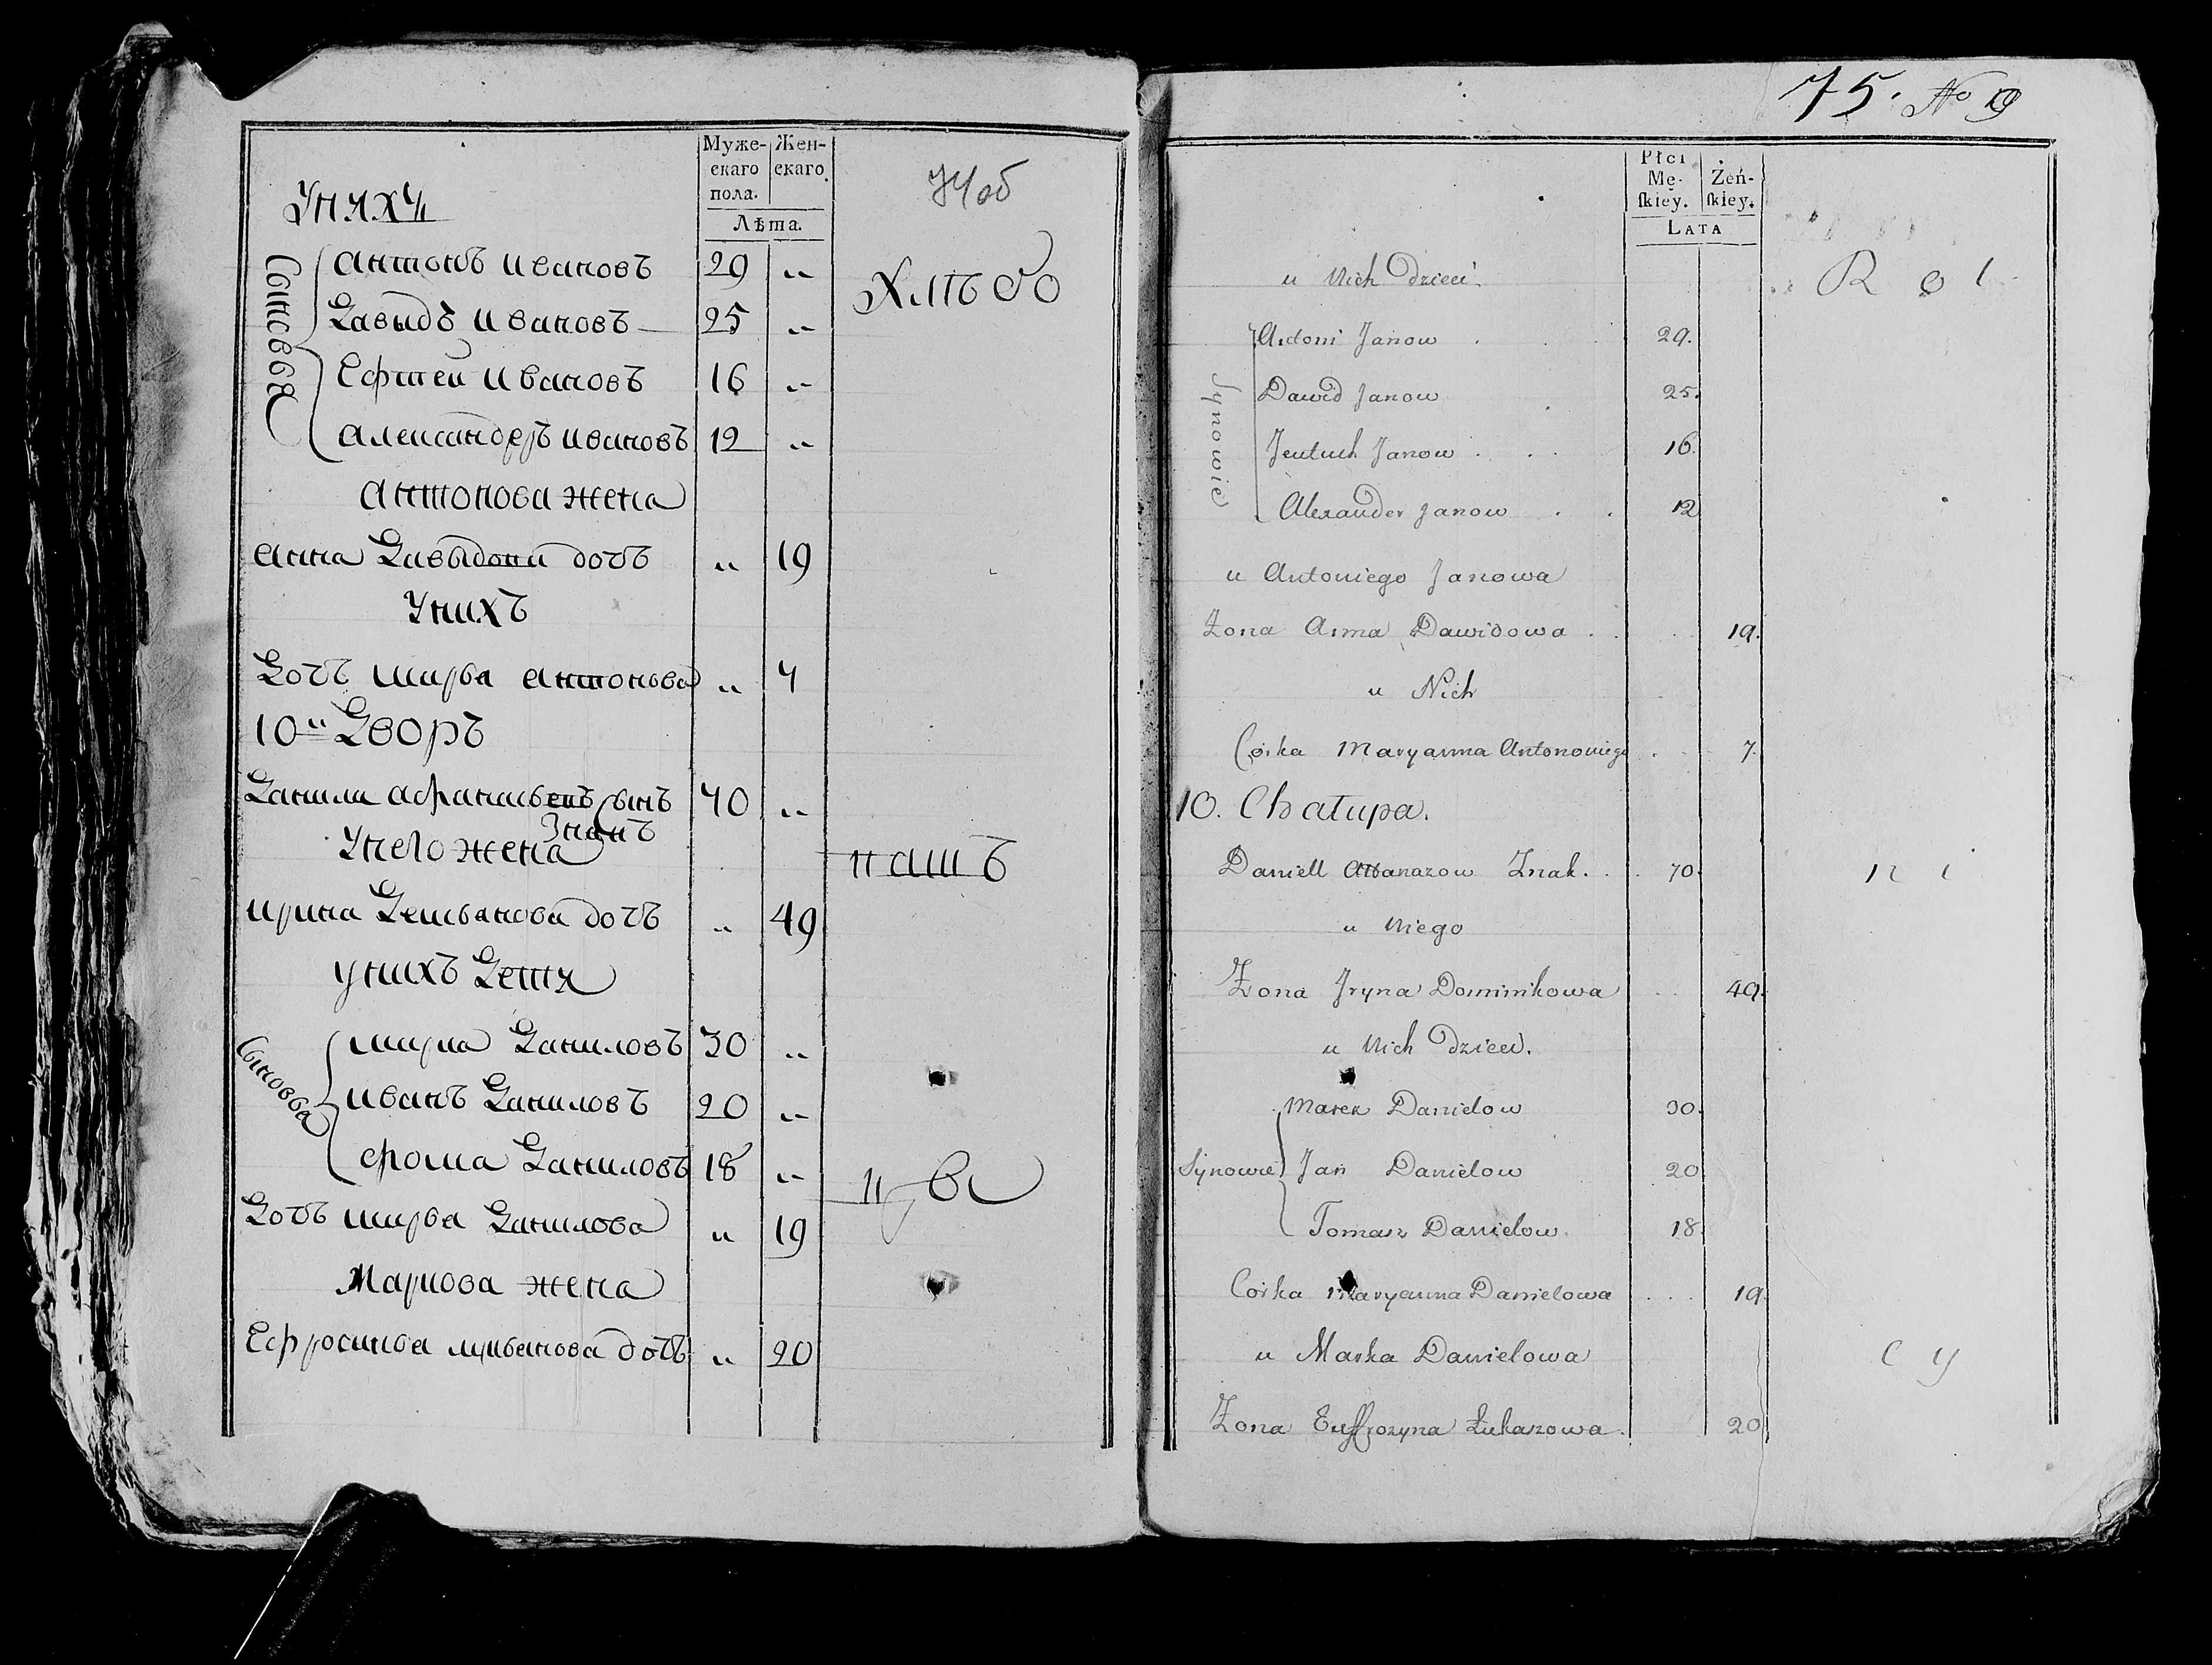 Муже-
скаго
пола.
Жен-
скаго
Лѣта.
74об
Сыновья
антонъ ивановъ 29 „
Давыдъ ивановъ 25 „
Ефтей ивановъ 16 „
александеръ ивановъ 12 „
антонова жена
анна Давыдова дочь „ 19
Унихъ
Дочь марья антонова „
10й Дворъ
Данила афанасьевъ сынъ
Знакъ
Унего жена
ирина Демьянова дочь „ 49
унихъ Детя
Сыновья
марка Даниловъ 30 „
иванъ Даниловъ 20 „
фома Даниловъ 18 „
Дочь марья Данилова „ 19
Маркова жена
Ефросинья дочь „ 20
Хлѣбо
паш
цы
75. No 9
Płci
Mę-
ſkiey.
Żeń-
ſkiey.
LATA
u Nich dzieci.
Synowie
Antoni Janow . 29.
Dawid Janow 25.
Jeutuch Janow . . . 16.
Alexander Janow . . 12
u Antoniego Janowa
Żona Anna Dawidowa . . 19.
u Nich
Córka Maryanna Antonowiego . 7.
10. Chałupa.
Daniell Atanazow Znak. . . 70.
u Niego
Żona Jryna Dominikowa . . 49.
u Nich dzieci.
Marek Danielow 30.
Synowie Jan Danielow 20
Tomasz Danielow. 18.
Córka Maryanna Danielowa . . . 19.
u Marka Danielowa
Żona Euffrozyna Łukaszowa. 20
R o l
n i
c y